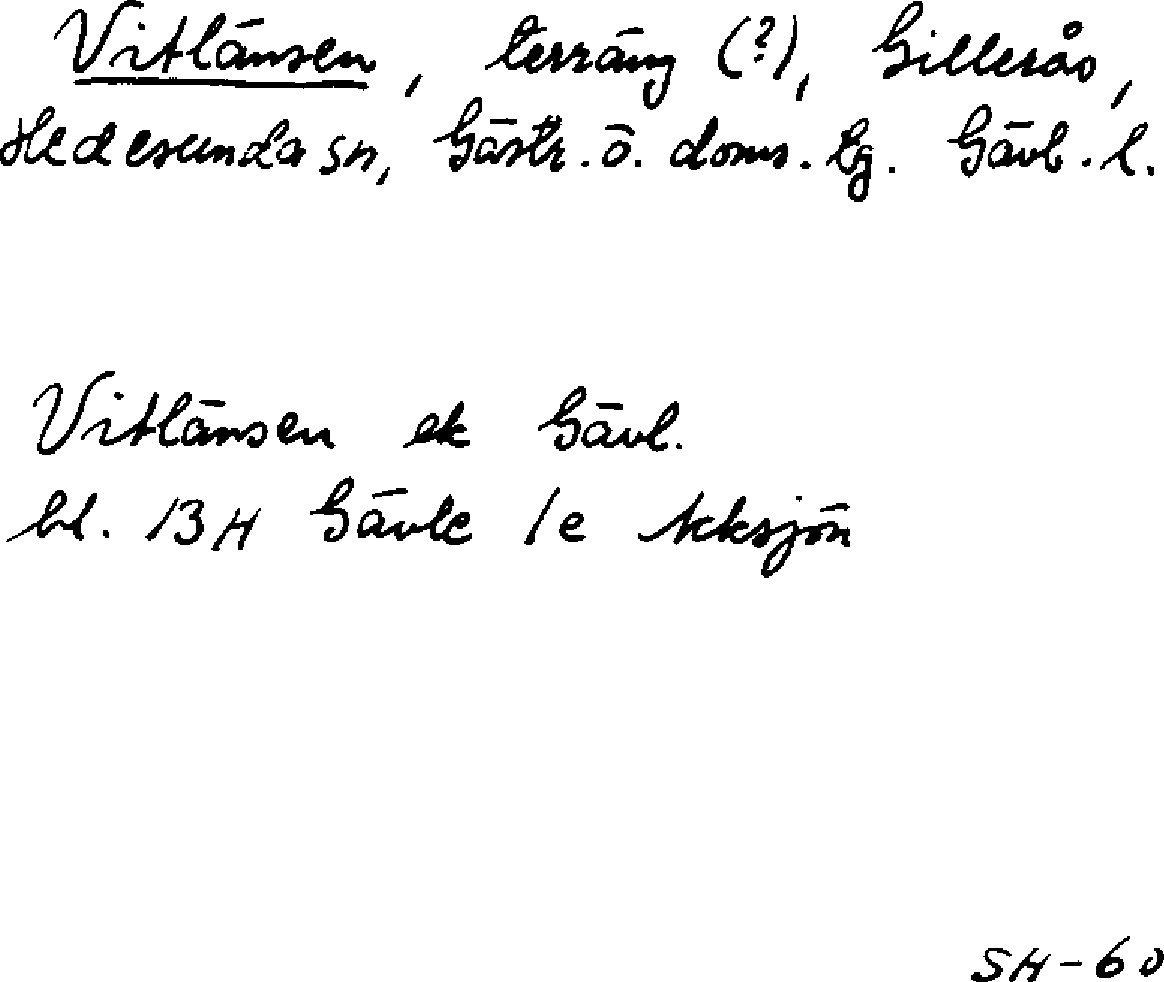 Vitlänsen, terräng (?), Gillerås,
Hedesunda sn, Gästr. ö. doms. tg. Gävl. l.
Vitlänsen ek Gävl.
bl. 13H Gävle 1e Akksjön
SH-60